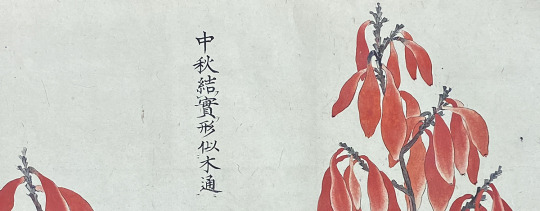 中秋結實形似木通